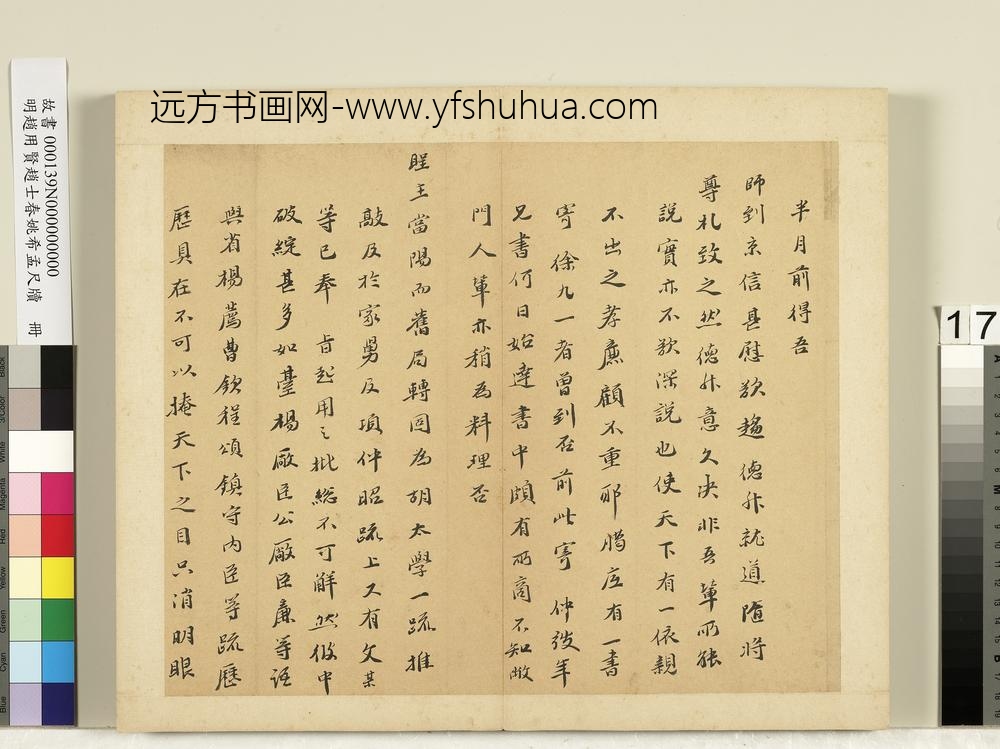 远方书画网-www.yfshuhua.com
故書 000139N000000000
明趙用賢趙士春姚希孟尺牘 冊
17
半月前得吾
師到京信甚慰欲趨 德升就道隨將
尊札致之然德升意久決非吾輩所能
說實亦不欲深說也使天下有一依親
不出之孝廉顧不重耶 有一書
寄 徐九一者曾到否前此寄 仲 年
兄書何日始達書中頗有所商不知敝
門人輩亦稍為料理否
聖王當陽而舊局轉固為胡太學一疏推
敲及於家舅及項仲昭疏上又有文某
等已奉 旨起用之批總不可解然彼中
破綻甚多如臺楊廠臣公廠臣廉等語
與省楊薦曹欽程頌鎮守內臣等疏歷
歷具在不可以掩天下之目只消明眼